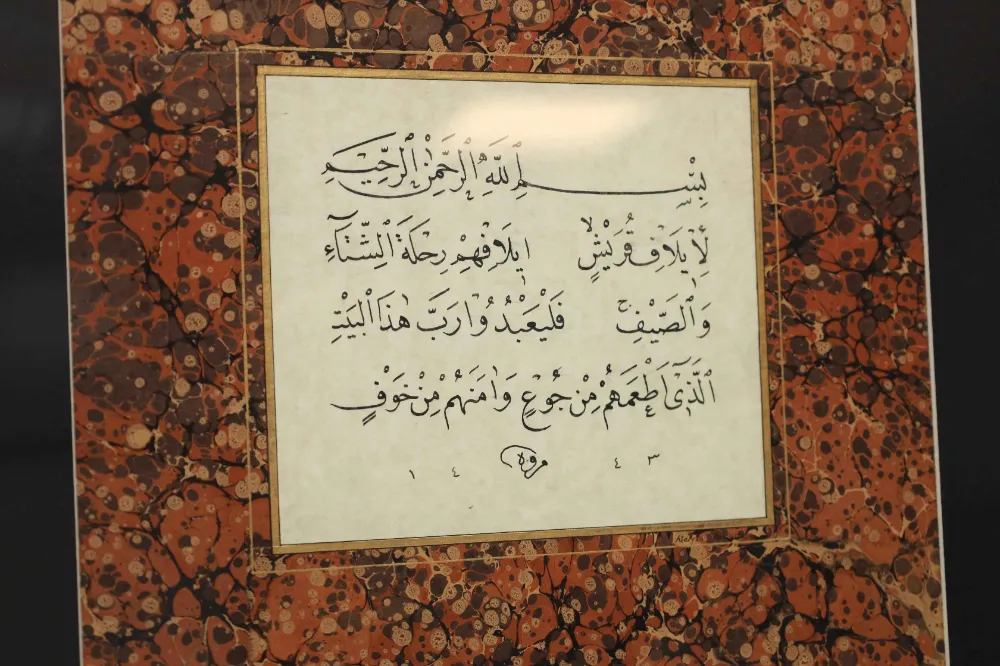 بِسْمِ اللّٰهِ الرَّحْمٰنِ الرَّحِيمِ
لِإِيلَافِ قُرَيْشٍ إِيلَافِهِمْ رِحْلَةَ الشِّتَآءِ
وَالصَّيْفِ فَلْيَعْبُدُوا رَبَّ هٰذَا الْبَيْتِ
الَّذِىٓ أَطْعَمَهُمْ مِنْ جُوعٍ وَاٰمَنَهُمْ مِنْ خَوْفٍ
١٤ مروة ٤٣